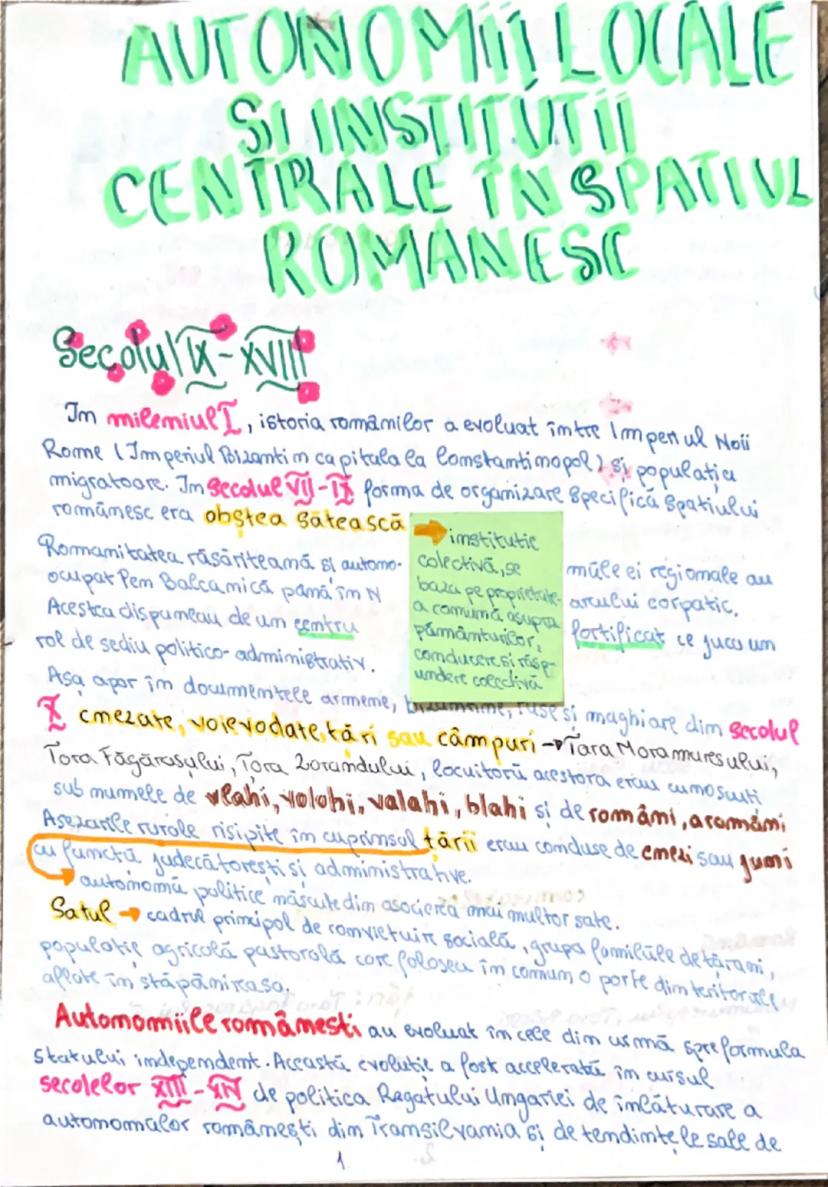 AUTONOMII LOCALE
ȘI INSTITUTII
CENTRALE ÎN SPATIUL
ROMANESC
Secolul IX - XVIII
Im mileniul I, istoria românilor a evoluat între Imperiul Noii
Rome (Imperiul Bizantin capitala la Constantinopol) și populația
migratoare. În secolul VII - IX forma de organizare specifică spatiului
românesc era obștea sătească
→ institutie
colectivă, se
baza pe proprietate-
a comună asupra
pământurilor,
conducere si răsp-
undere colectivă
Romanitatea răsăriteană și autono-
miile ei regionale au
ocupat Pen Balcanică până în N
arcului carpatic.
Acestea dispuneau de un centru
fortificat ce juca un
rol de sediu politico-administrativ.
Așa apar în documentele armene, bizantine, ruse și maghiare din secolul
X cnezate, voievodate, tări sau câmpuri → Tara Maramuresului,
Tara Făgărașului, Tara Lorandului, locuitorii acestora erau cunoscuti
sub numele de vlahi, volohi, valahi, blahi și de români, aromâni
Asezarile rurale risipite în cuprinsul tării erau conduse de cnezi sau juzi
cu functii judecătorești și administrative.
→ autonomii politice născute din asocierea mai multor sate.
Satul → cadrul principal de convietuire socială, grupa familiile de tărani,
populatie agricolă pastorală care folosea în comun o parte din teritoriile
aflate în stăpânirea sa.
Autonomiile românesti au evoluat în cele din urmă spre formula
statului independent. Această evolutie a fost accelerată în cursul
secolelor XIII - XIV de politica Regatului Ungariei de înlăturare a
autonomiilor românești din Transilvania și de tendintele sale de
1